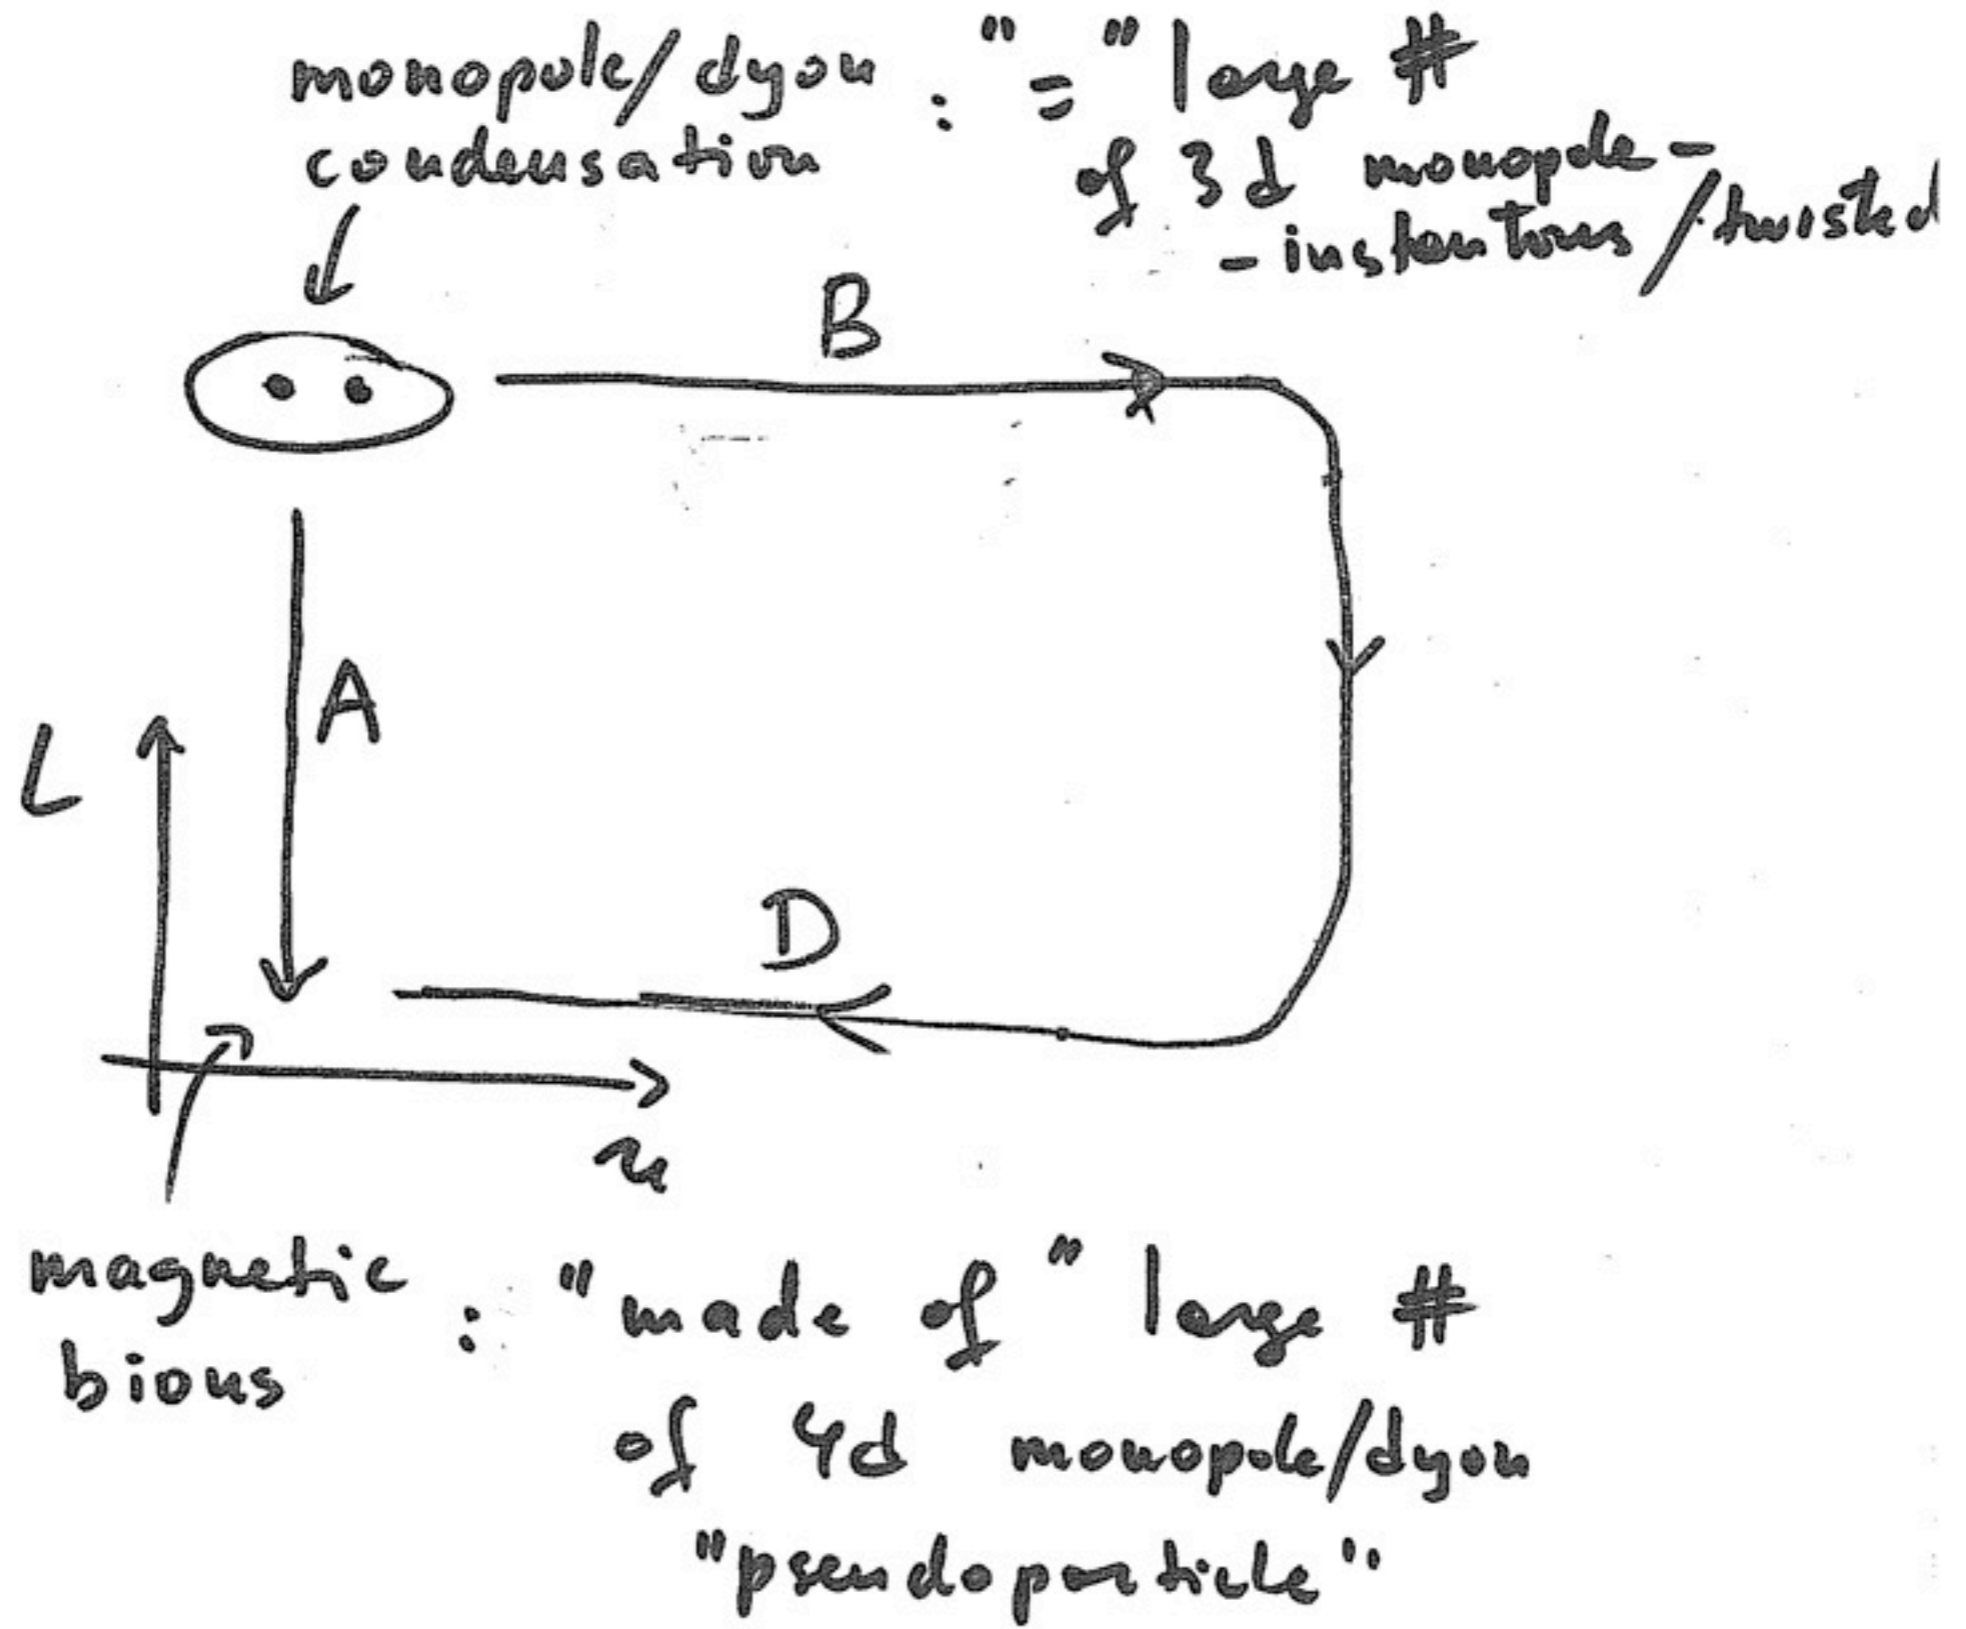 monopole/dyon : "=" large #
condensation of 3d monopole-
-instantons/twisted
B
A
L
D
u
magnetic : "made of" large #
bions
of 4d monopole/dyon
"pseudoparticle"